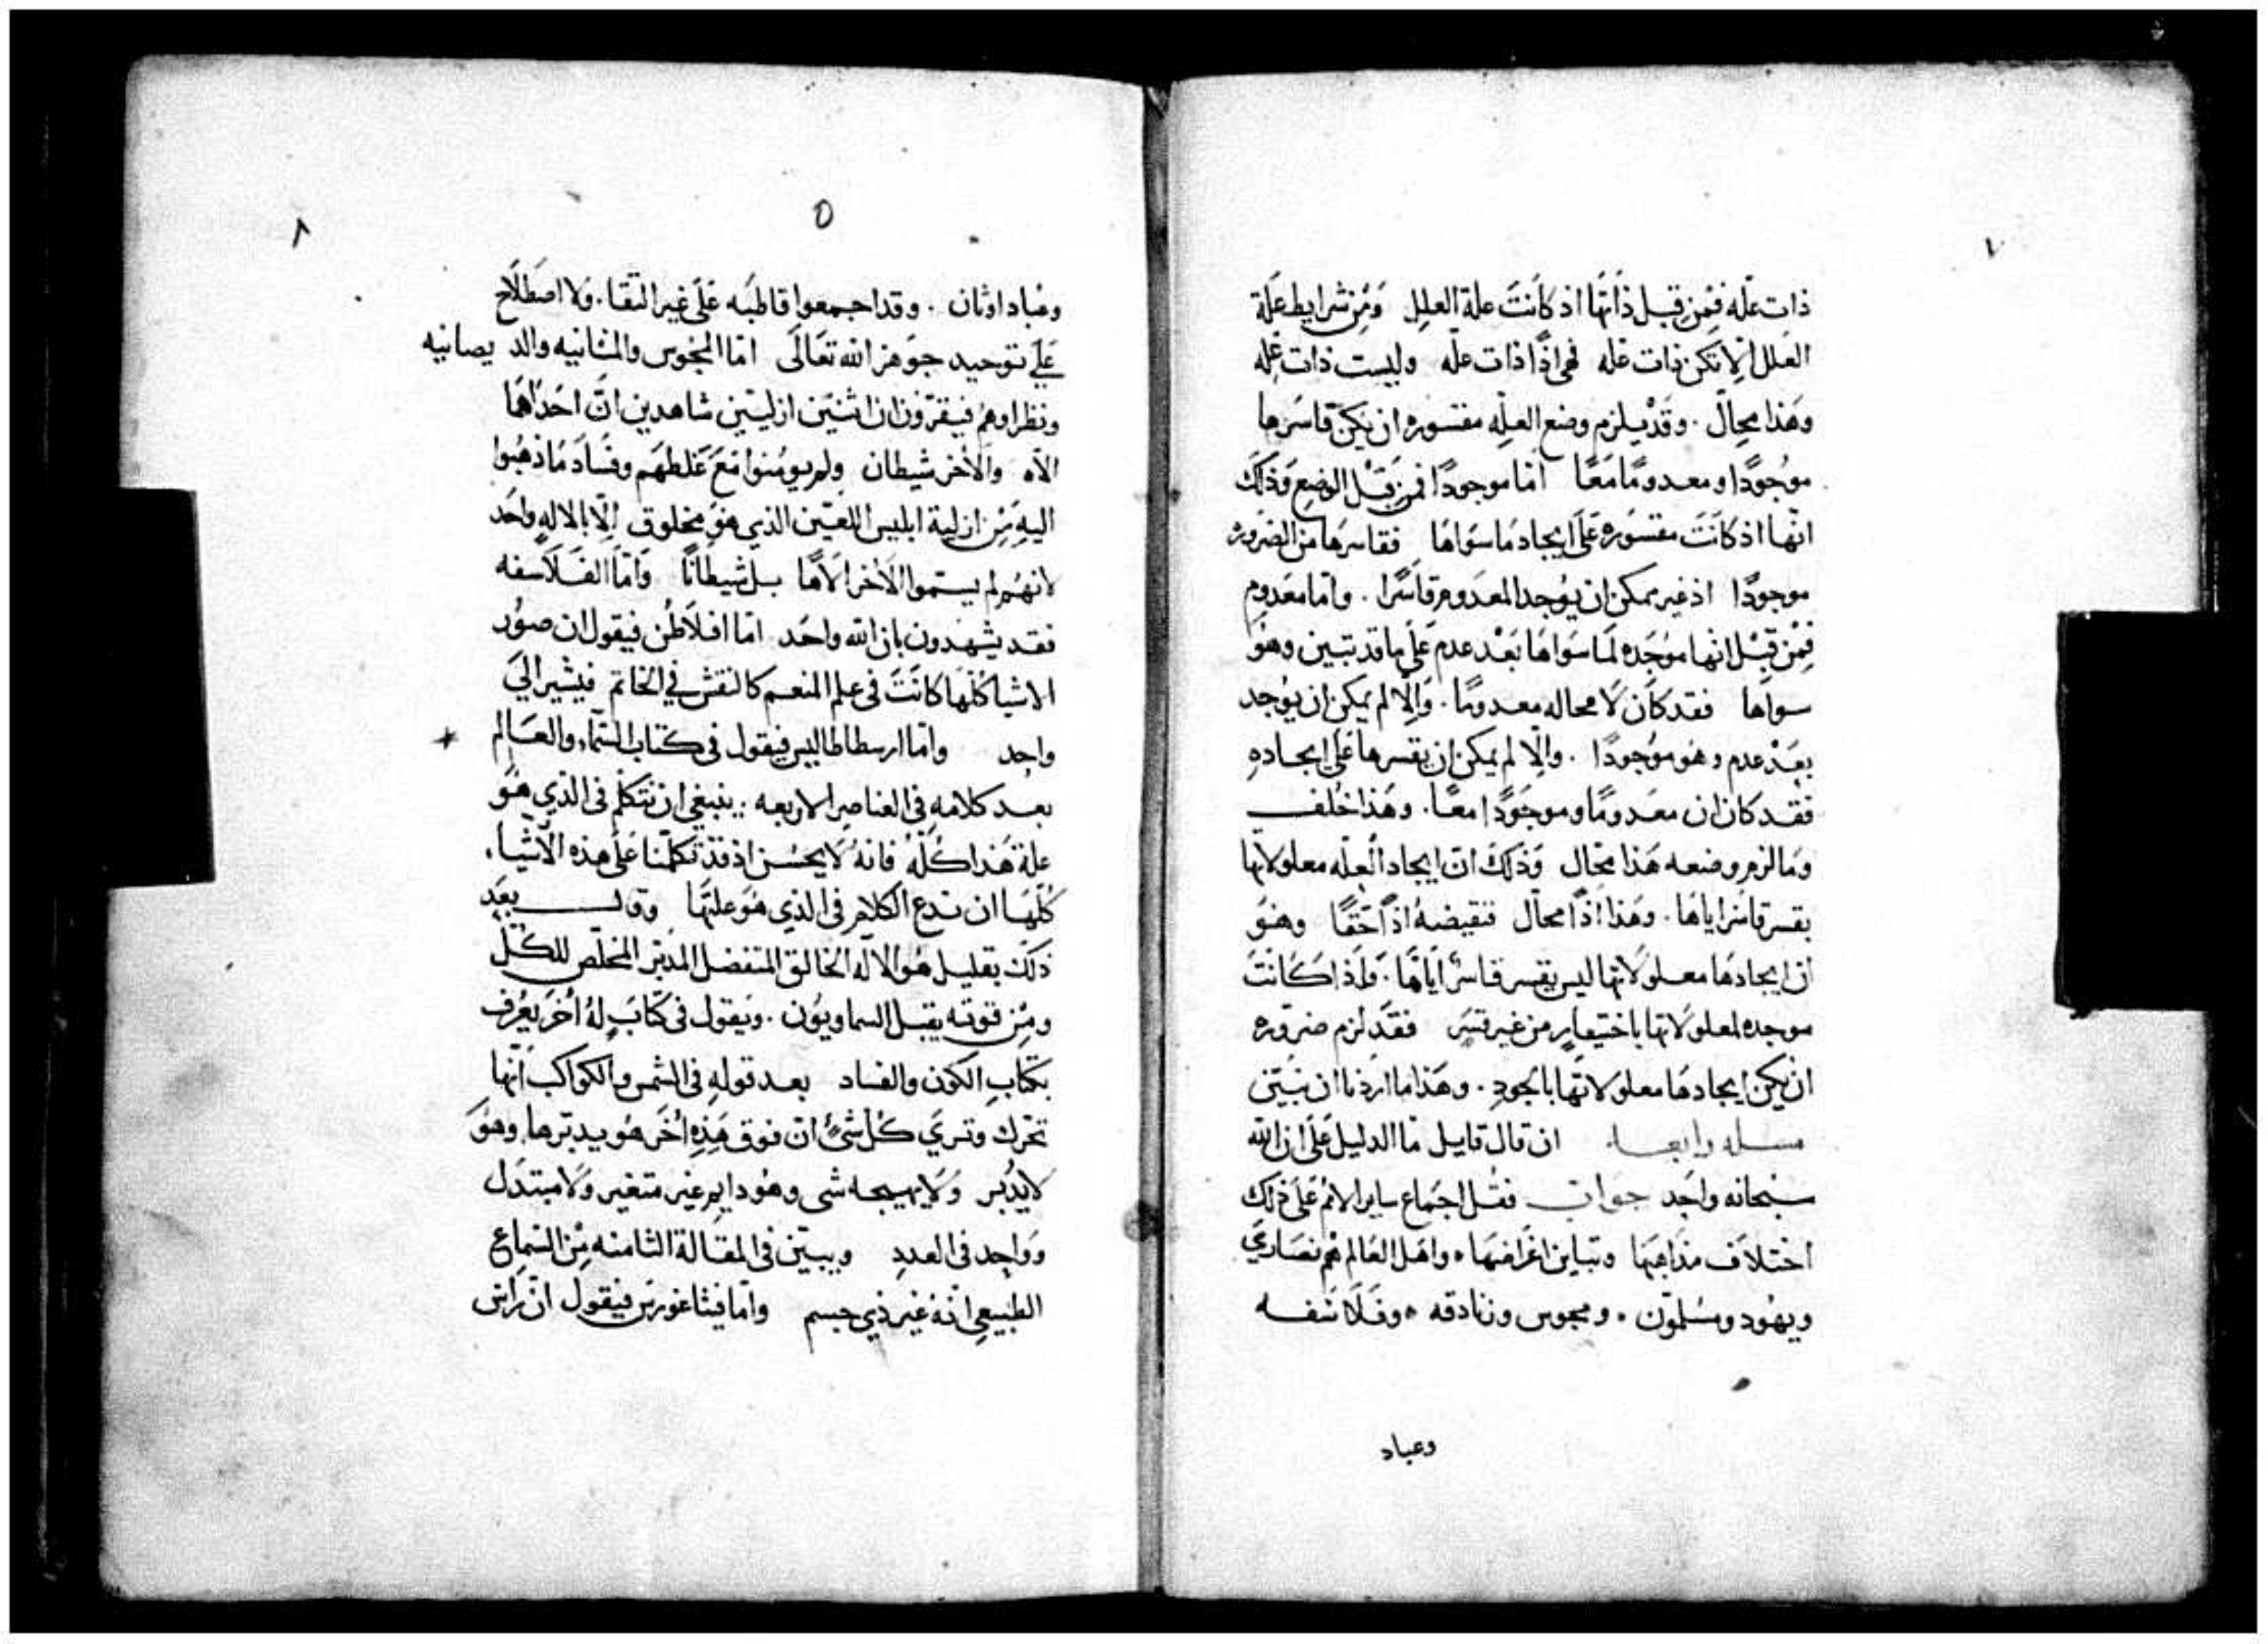 ٧
ذات علّه فمن قبل ذاتها اذ كانت علة العلل ومن شرايط علة
العلل الا تكن ذات عله فهي اذًا ذات علّه وليست ذات عله
وهذا محال . وقد يلزم وضع العلّه مقسوره ان يكن قاسرها
موجودًا ومعدومًا معًا امّا موجودًا فمن قبل الوضع وذلك
انها اذ كانت مقسوره على ايجاد ما سواها فقاسرها من الضروره
موجودًا اذ غير ممكن ان يوجد المعدوم قاسرًا . وامّا معدوم
فمن قبل انها موجده لما سواها بعد عدم على ما قد تبين وهو
سواها فقد كان لا محاله معدومًا . والّا لم يمكن ان يوجد
بعد عدم وهو موجودًا . والّا لم يمكن ان يقسرها على ايجاده
فقد كان ان معدومًا وموجودًا معًا . وهذا خلف
وما لزم وضعه هذا محال وذلك انّ ايجاد العلّه معلولاتها
بقسر قاسر اياها . وهذا اذًا محال فنقيضه اذًا حقًا وهو
ان ايجادها معلولاتها ليس بقسر قاسر اياها . ولذا كانت
موجده لمعلولاتها باختيار من غير قسر فقد لزم ضروره
ان يكن ايجادها معلولاتها بالجود . وهذا ما اردنا ان نبيّن
مسله رابعه ان قال قايل ما الدليل على ان الله
سبحانه واحد جواب فقل اجماع ساير الامم على ذلك
اختلاف مذاهبها وتباين اغراضها ، واهل العالم هم نصاري
ويهود ومسلمون . ومجوس وزنادقه ، وفلاسفه
وعباد
٨
٥
وعباد اوثان . وقد اجمعوا قاطبه على غير التقا . ولا اصطلاح
على توحيد جوهر الله تعالى امّا المجوس والمنانيه والديصانيه
ونظراوهم فيقرّون ان اثنين ازليين شاهدين انّ احداهما
الاه والاخر شيطان ولم يومنوا مع غلطهم وفساد ما ذهبوا
اليه من ازلية ابليس اللعين الذي هو مخلوق الّا بالاله واحد
لانهم لم يسموا الاخر الاها بل شيطانًا وامّا الفلاسفه
فقد يشهدون بان الله واحد امّا افلاطن فيقول ان صور
الاشيا كلها كانت في علم المنعم كالنقش في الخاتم فيشير الي
واحد وامّا ارسطاطاليس فيقول في كتاب السّماء والعالم
بعد كلامه في العناصر الاربعه .. ينبغي ان نتكلم في الذي هو
علة هذا كلّه فانه لا يحسن اذ قد تكلمنا على هذه الاشيا .
كلّها ان ندع الكلام في الذي هو علتها وقال بعد
ذلك بقليل هو الاله الخالق المتفضل المدبّر المخلّص للكلّ
ومن قوته يقبل السماويون . ويقول في كتاب له اخر يعرف
بكتاب الكون والفساد بعد قوله في الشمس والكواكب انّها
تحرك وتري كل شيء انّ فوق هذه اخر هو يدبّرها وهو
لا يدبر ولا يهيجه شي وهو دايم غير متغير ولا مبتدل
وواحد في العدد ويبيّن في المقالة الثامنه من السماع
الطبيعي انه غير ذي جسم وامّا فيثاغورس فيقول انّ راس